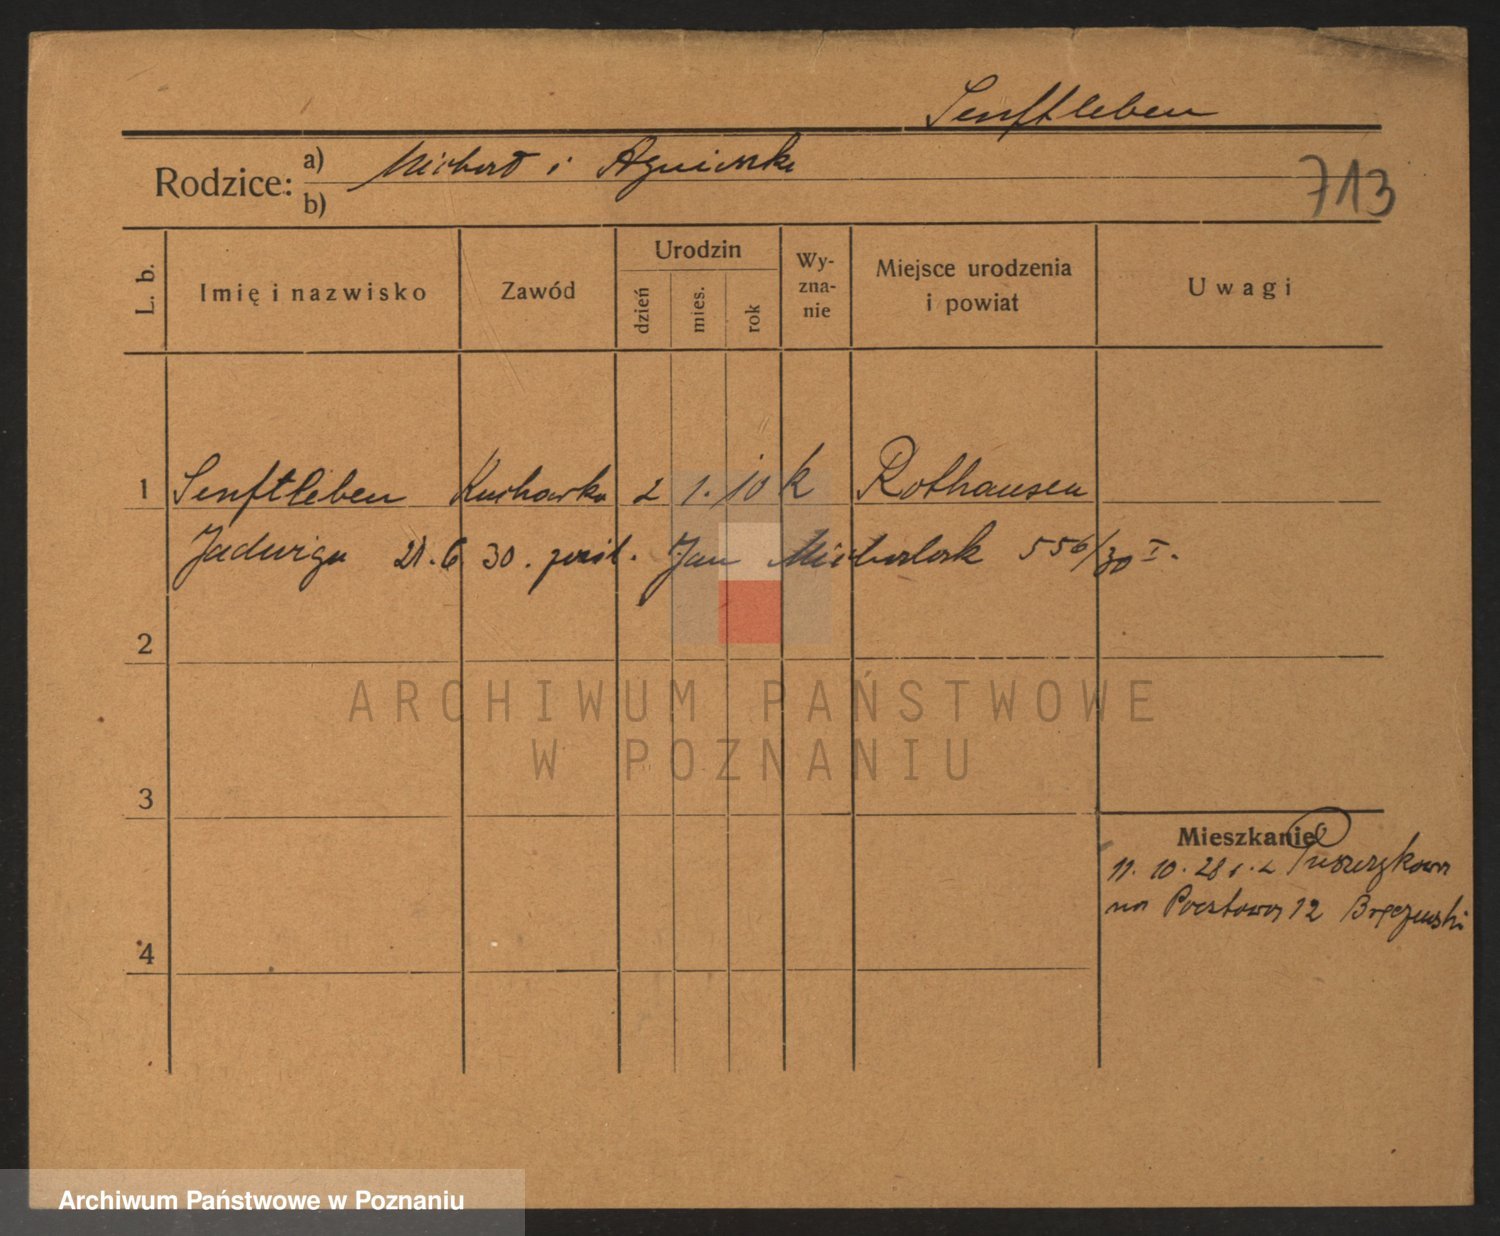 Senftleben
Rodzice: a) Michał i Agnieszka
b)
713
L. b. Imię i nazwisko Zawód Urodzin dzień mies. rok Wy-zna-nie Miejsce urodzenia i powiat Uwagi
1 Senftleben Kucharka 2 1. 10 k Rothausen
Jadwiga 21. 6 30. Jan 556/30 I.
2
ARCHIWUM PAŃSTWOWE
W POZNANIU
3
Mieszkanie
11. 10. 28 r. z
na Pocztowa 12
4
Archiwum Państwowe w Poznaniu